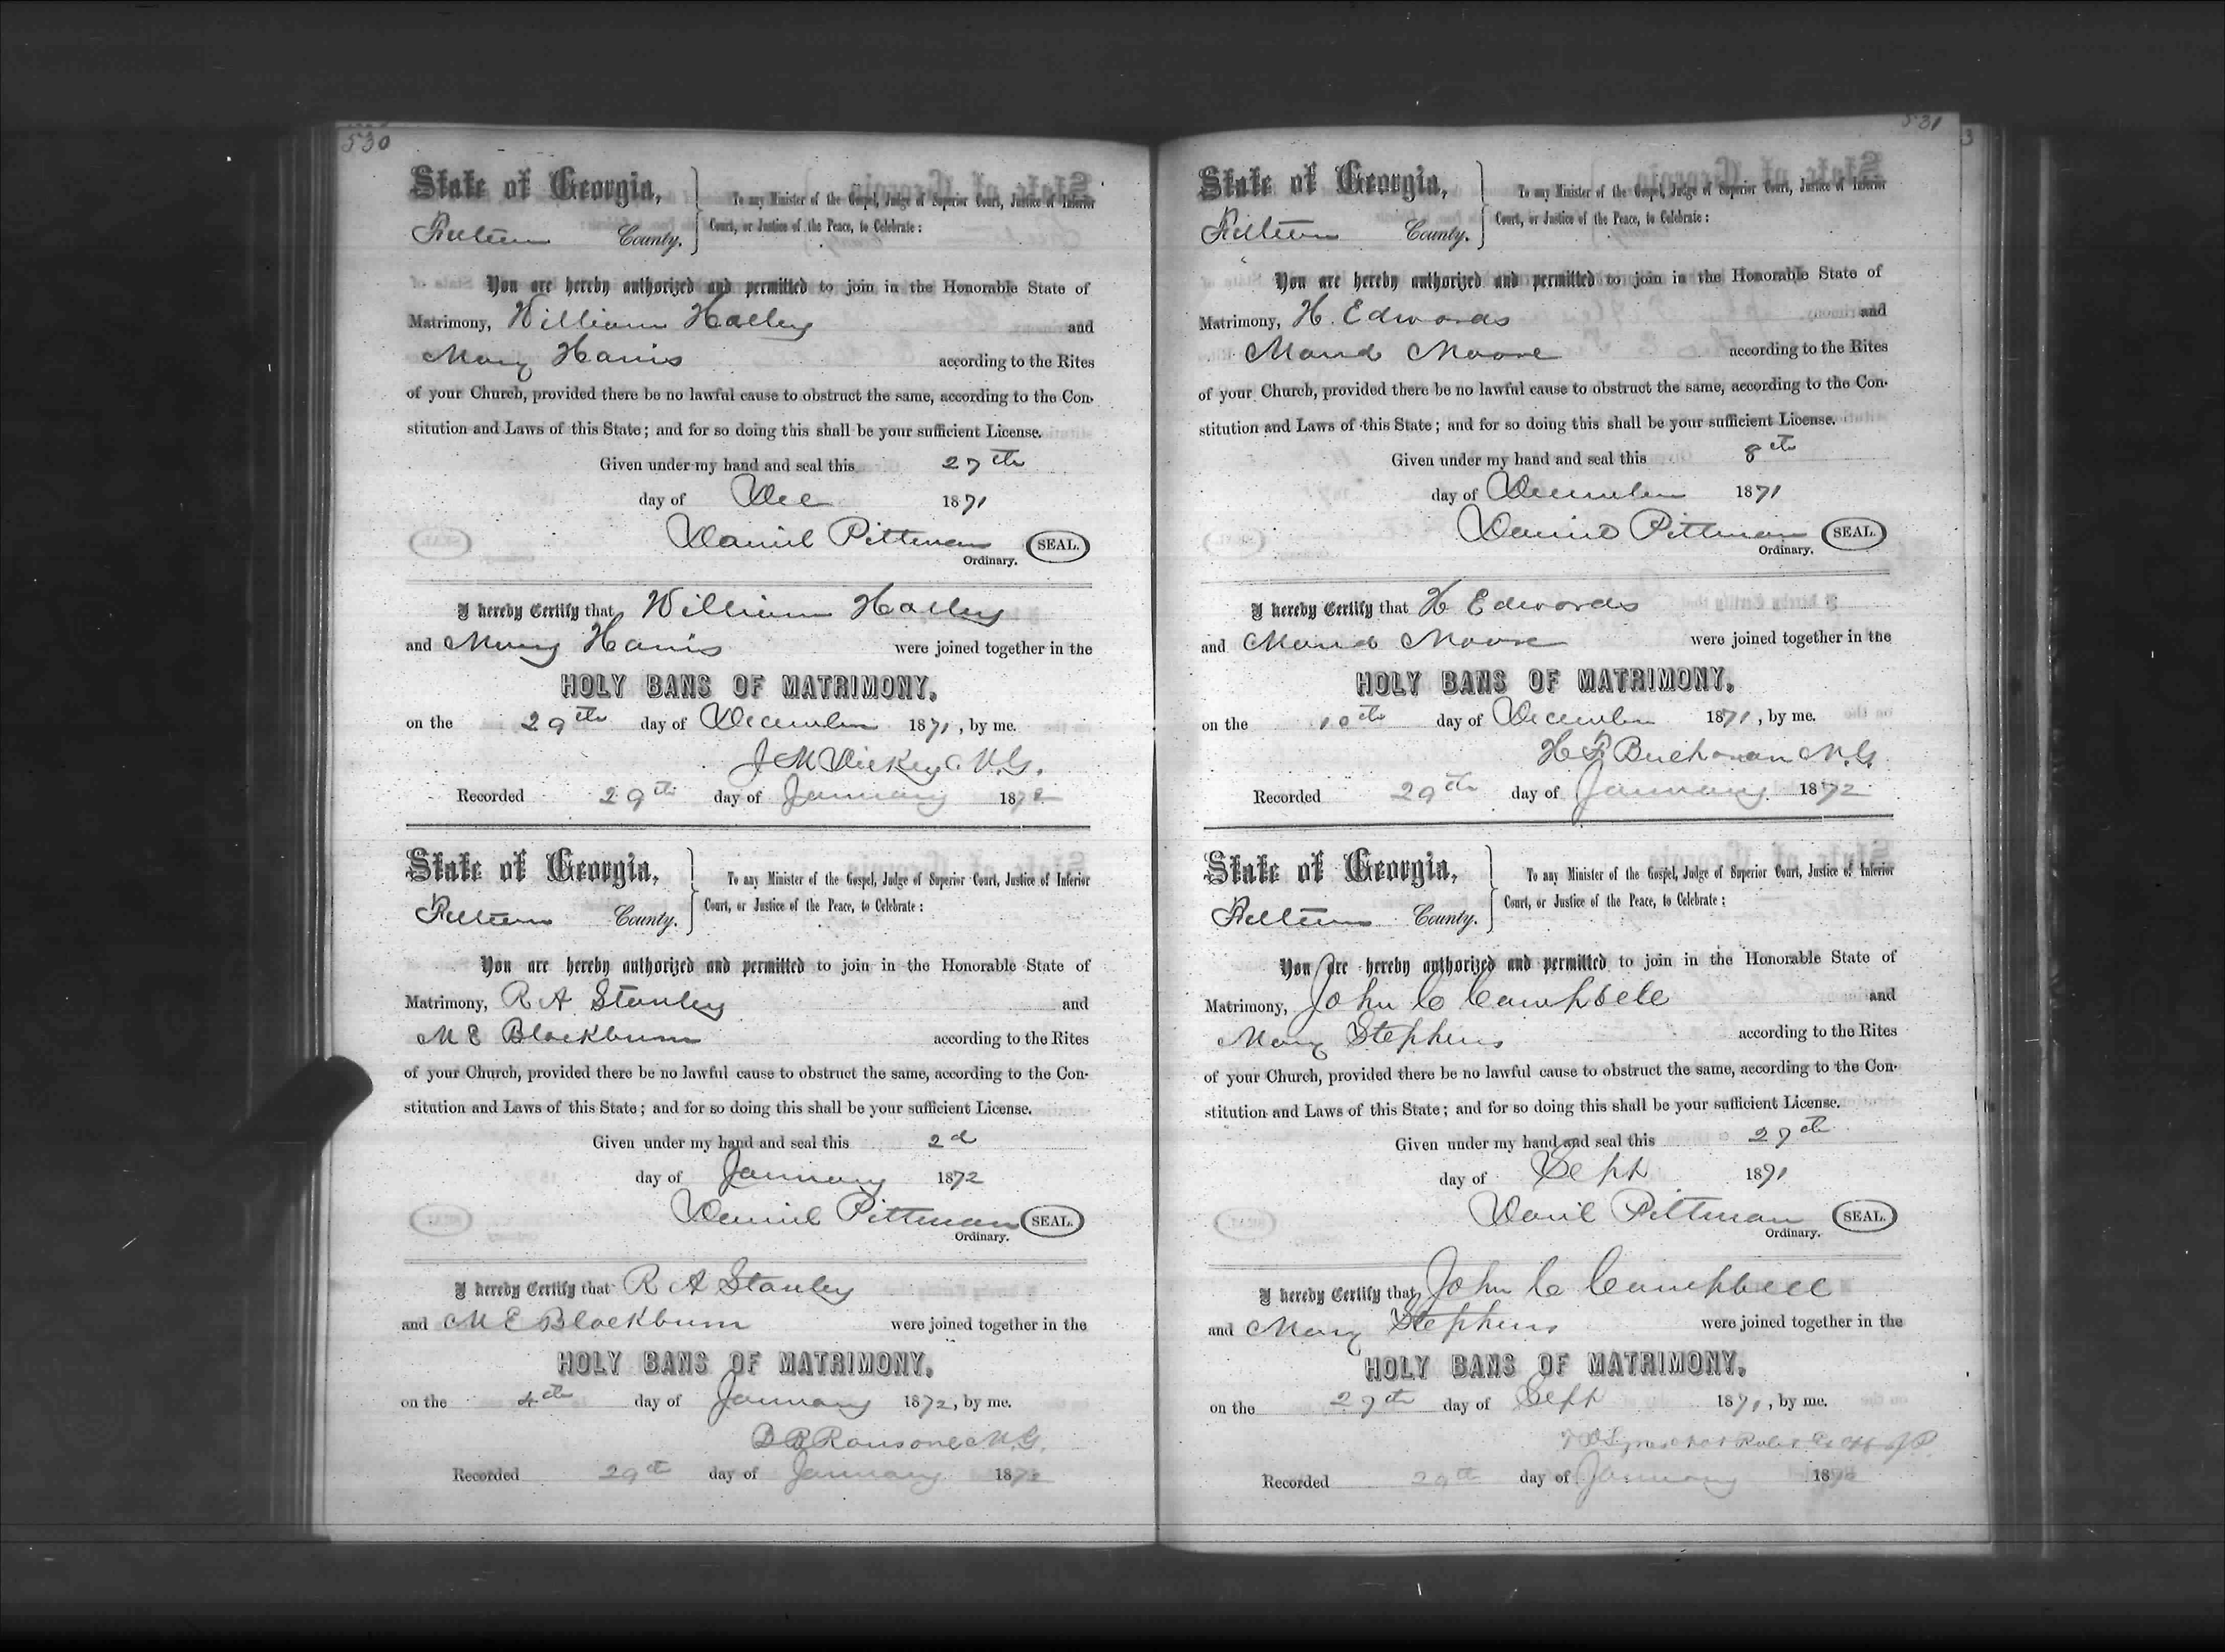 530
State of Georgia,
Fulton County.
To any Minister of the Gospel, Judge of Superior Court, Justice of Inferior
Court, or Justice of the Peace, to Celebrate:
You are hereby authorized and permitted to join in the Honorable State of
Matrimony, William Halley and
Mary Harris according to the Rites
of your Church, provided there be no lawful cause to obstruct the same, according to the Con-
stitution and Laws of this State; and for so doing this shall be your sufficient License.
Given under my hand and seal this 27th
day of Dec 1871
Daniel Pittman SEAL.
Ordinary.
I hereby Certify that William Halley
and Mary Harris were joined together in the
HOLY BANS OF MATRIMONY,
on the 29th day of December 1871, by me.
J M Dickey M.G.
Recorded 29th day of January 1872
State of Georgia,
Fulton County.
To any Minister of the Gospel, Judge of Superior Court, Justice of Inferior
Court, or Justice of the Peace, to Celebrate:
You are hereby authorized and permitted to join in the Honorable State of
Matrimony, R A Stanley and
M E Blackburn according to the Rites
of your Church, provided there be no lawful cause to obstruct the same, according to the Con-
stitution and Laws of this State; and for so doing this shall be your sufficient License.
Given under my hand and seal this 2d
day of January 1872
Daniel Pittman SEAL.
Ordinary.
I hereby Certify that R A Stanley
and M E Blackburn were joined together in the
HOLY BANS OF MATRIMONY,
on the 4th day of January 1872, by me.
B B Ransone M.G.
Recorded 29th day of January 1872
531
3
State of Georgia,
Fulton County.
To any Minister of the Gospel, Judge of Superior Court, Justice of Inferior
Court, or Justice of the Peace, to Celebrate:
You are hereby authorized and permitted to join in the Honorable State of
Matrimony, H. Edwards and
Maud Moore according to the Rites
of your Church, provided there be no lawful cause to obstruct the same, according to the Con-
stitution and Laws of this State; and for so doing this shall be your sufficient License.
Given under my hand and seal this 8th
day of December 1871
Daniel Pittman SEAL.
Ordinary.
I hereby Certify that H Edwards
and Maud Moore were joined together in the
HOLY BANS OF MATRIMONY,
on the 10th day of December 1871, by me.
H F Buchanan M.G.
Recorded 29th day of January 1872
State of Georgia,
Fulton County.
To any Minister of the Gospel, Judge of Superior Court, Justice of Inferior
Court, or Justice of the Peace, to Celebrate:
You are hereby authorized and permitted to join in the Honorable State of
Matrimony, John C Campbell and
Mary Stephens according to the Rites
of your Church, provided there be no lawful cause to obstruct the same, according to the Con-
stitution and Laws of this State; and for so doing this shall be your sufficient License.
Given under my hand and seal this 27th
day of Sept 1871
Danil Pittman SEAL.
Ordinary.
I hereby Certify that John C Campbell
and Mary Stephens were joined together in the
HOLY BANS OF MATRIMONY,
on the 27th day of Sept 1871, by me.
Recorded 29th day of January 1872